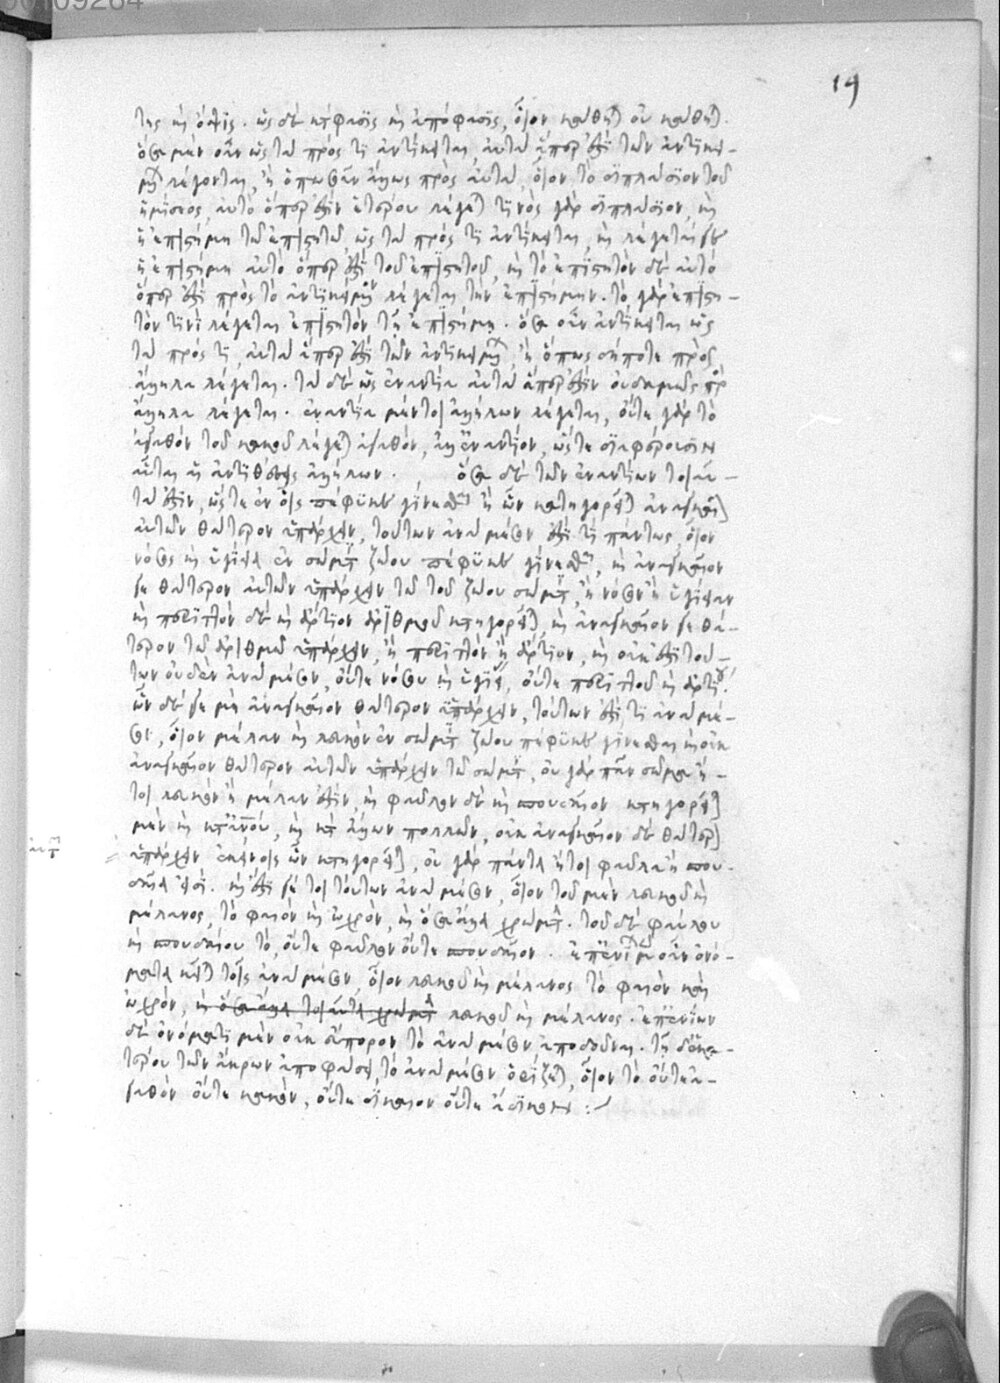 της καὶ ὄψις. ὡς δὲ κατάφασις καὶ ἀπόφασις, οἷον κάθηται οὐ κάθηται.
ὅσα μὲν οὖν ὡς τὰ πρός τι ἀντίκειται, αὐτὰ ἅπερ ἐστὶ τῶν ἀντικει-
μένων λέγονται, ἢ ὁπωσοῦν ἄλλως πρὸς αὐτά, οἷον τὸ διπλάσιον τοῦ
ἡμίσεος, αὐτὸ ὅπερ ἐστὶν ἑτέρου λέγεται τινὸς γὰρ διπλάσιον, καὶ
ἡ ἐπιστήμη τῷ ἐπιστητῷ, ὡς τὰ πρός τι ἀντίκειται, καὶ λέγεταί γε
ἡ ἐπιστήμη αὐτὸ ὅπερ ἐστὶ τοῦ ἐπιστητοῦ, καὶ τὸ ἐπιστητὸν δὲ αὐτὸ
ὅπερ ἐστὶ πρὸς τὸ ἀντικείμενον λέγεται τὴν ἐπιστήμην. τὸ γὰρ ἐπιστη-
τὸν τινὶ λέγεται ἐπιστητὸν τῇ ἐπιστήμῃ. ὅσα οὖν ἀντίκειται ὡς
τὰ πρός τι, αὐτὰ ἅπερ ἐστὶ τῶν ἀντικειμένων, ἢ ὅπως δήποτε πρὸς
ἄλληλα λέγεται. τὰ δὲ ὡς ἐναντία αὐτὰ ἅπερ ἐστὶν οὐδαμῶς πρὸς
ἄλληλα λέγεται. ἐναντία μέντοι ἀλλήλων λέγεται, οὔτε γὰρ τὸ
ἀγαθὸν τοῦ κακοῦ λέγεται ἀγαθὸν, ἀλλ' ἐναντίον, ὥστε διαφέρουσιν
αὗται αἱ ἀντιθέσεις ἀλλήλων. ὅσα δὲ τῶν ἐναντίων τοιαῦ-
τά ἐστιν, ὥστε ἐν οἷς πέφυκε γίνεσθαι ἢ ὧν κατηγορεῖται ἀναγκαῖον
αὐτῶν θάτερον ὑπάρχειν, τούτων ἀνὰ μέσον ἐστί τι πάντως, οἷον
νόσος καὶ ὑγίεια ἐν σώματι ζώου πέφυκε γίνεσθαι, καὶ ἀναγκαῖον
γε θάτερον αὐτῶν ὑπάρχειν τῷ τοῦ ζώου σώματι ἢ νόσον ἢ ὑγίειαν
καὶ περιττὸν δὲ καὶ ἄρτιον ἀριθμοῦ κατηγορεῖται, καὶ ἀναγκαῖον γε θά-
τερον τῷ ἀριθμῷ ὑπάρχειν, ἢ περιττὸν ἢ ἄρτιον, καὶ οὐκ ἔστι τού-
των οὐδὲν ἀνὰ μέσον, οὔτε νόσου καὶ ὑγιείας, οὔτε περιττοῦ καὶ ἀρτίου.
ὧν δέ γε μὴ ἀναγκαῖον θάτερον ὑπάρχειν, τούτων ἐστί τι ἀνὰ μέ-
σον, οἷον μέλαν καὶ λευκὸν ἐν σώματι ζώου πέφυκε γίνεσθαι καὶ οὐκ
ἀναγκαῖον θάτερον αὐτῶν ὑπάρχειν τῷ σώματι, οὐ γὰρ πᾶν σῶμα ἤ-
τοι λευκὸν ἢ μέλαν ἐστὶν, καὶ φαῦλον δὲ καὶ σπουδαῖον κατηγορεῖται
μὲν καὶ κατ' ἀνθρώπου, καὶ κατ' ἄλλων πολλῶν, οὐκ ἀναγκαῖον δὲ θάτερον
ὑπάρχειν ἐκείνοις ὧν κατηγορεῖται, οὐ γὰρ πάντα ἤτοι φαῦλα ἢ σπου-
δαῖα ἐστί. καὶ ἔστι γέ τοι τούτων ἀνὰ μέσον, οἷον τοῦ μὲν λευκοῦ καὶ
μέλανος, τὸ φαιὸν καὶ ὠχρὸν, καὶ ὅσα ἄλλα χρώματα. τοῦ δὲ φαύλου
καὶ σπουδαίου τὸ, οὔτε φαῦλον οὔτε σπουδαῖον. ἐπ' ἐνίων μὲν οὖν ὀνό-
ματα κεῖται τοῖς ἀνὰ μέσον, οἷον λευκοῦ καὶ μέλανος τὸ φαιὸν καὶ
ὠχρὸν, καὶ ὅσα ἄλλα τοιαῦτα χρώματα λευκοῦ καὶ μέλανος. ἐπ' ἐνίων
δὲ ὀνόματι μὲν οὐκ εὔπορον τὸ ἀνὰ μέσον ἀποδοῦναι. τῇ δ' ἑκα-
τέρου τῶν ἄκρων ἀποφάσει, τὸ ἀνὰ μέσον ὁρίζεται, οἷον τὸ οὔτε ἀ-
γαθὸν οὔτε κακὸν, οὔτε δίκαιον οὔτε ἄδικον :